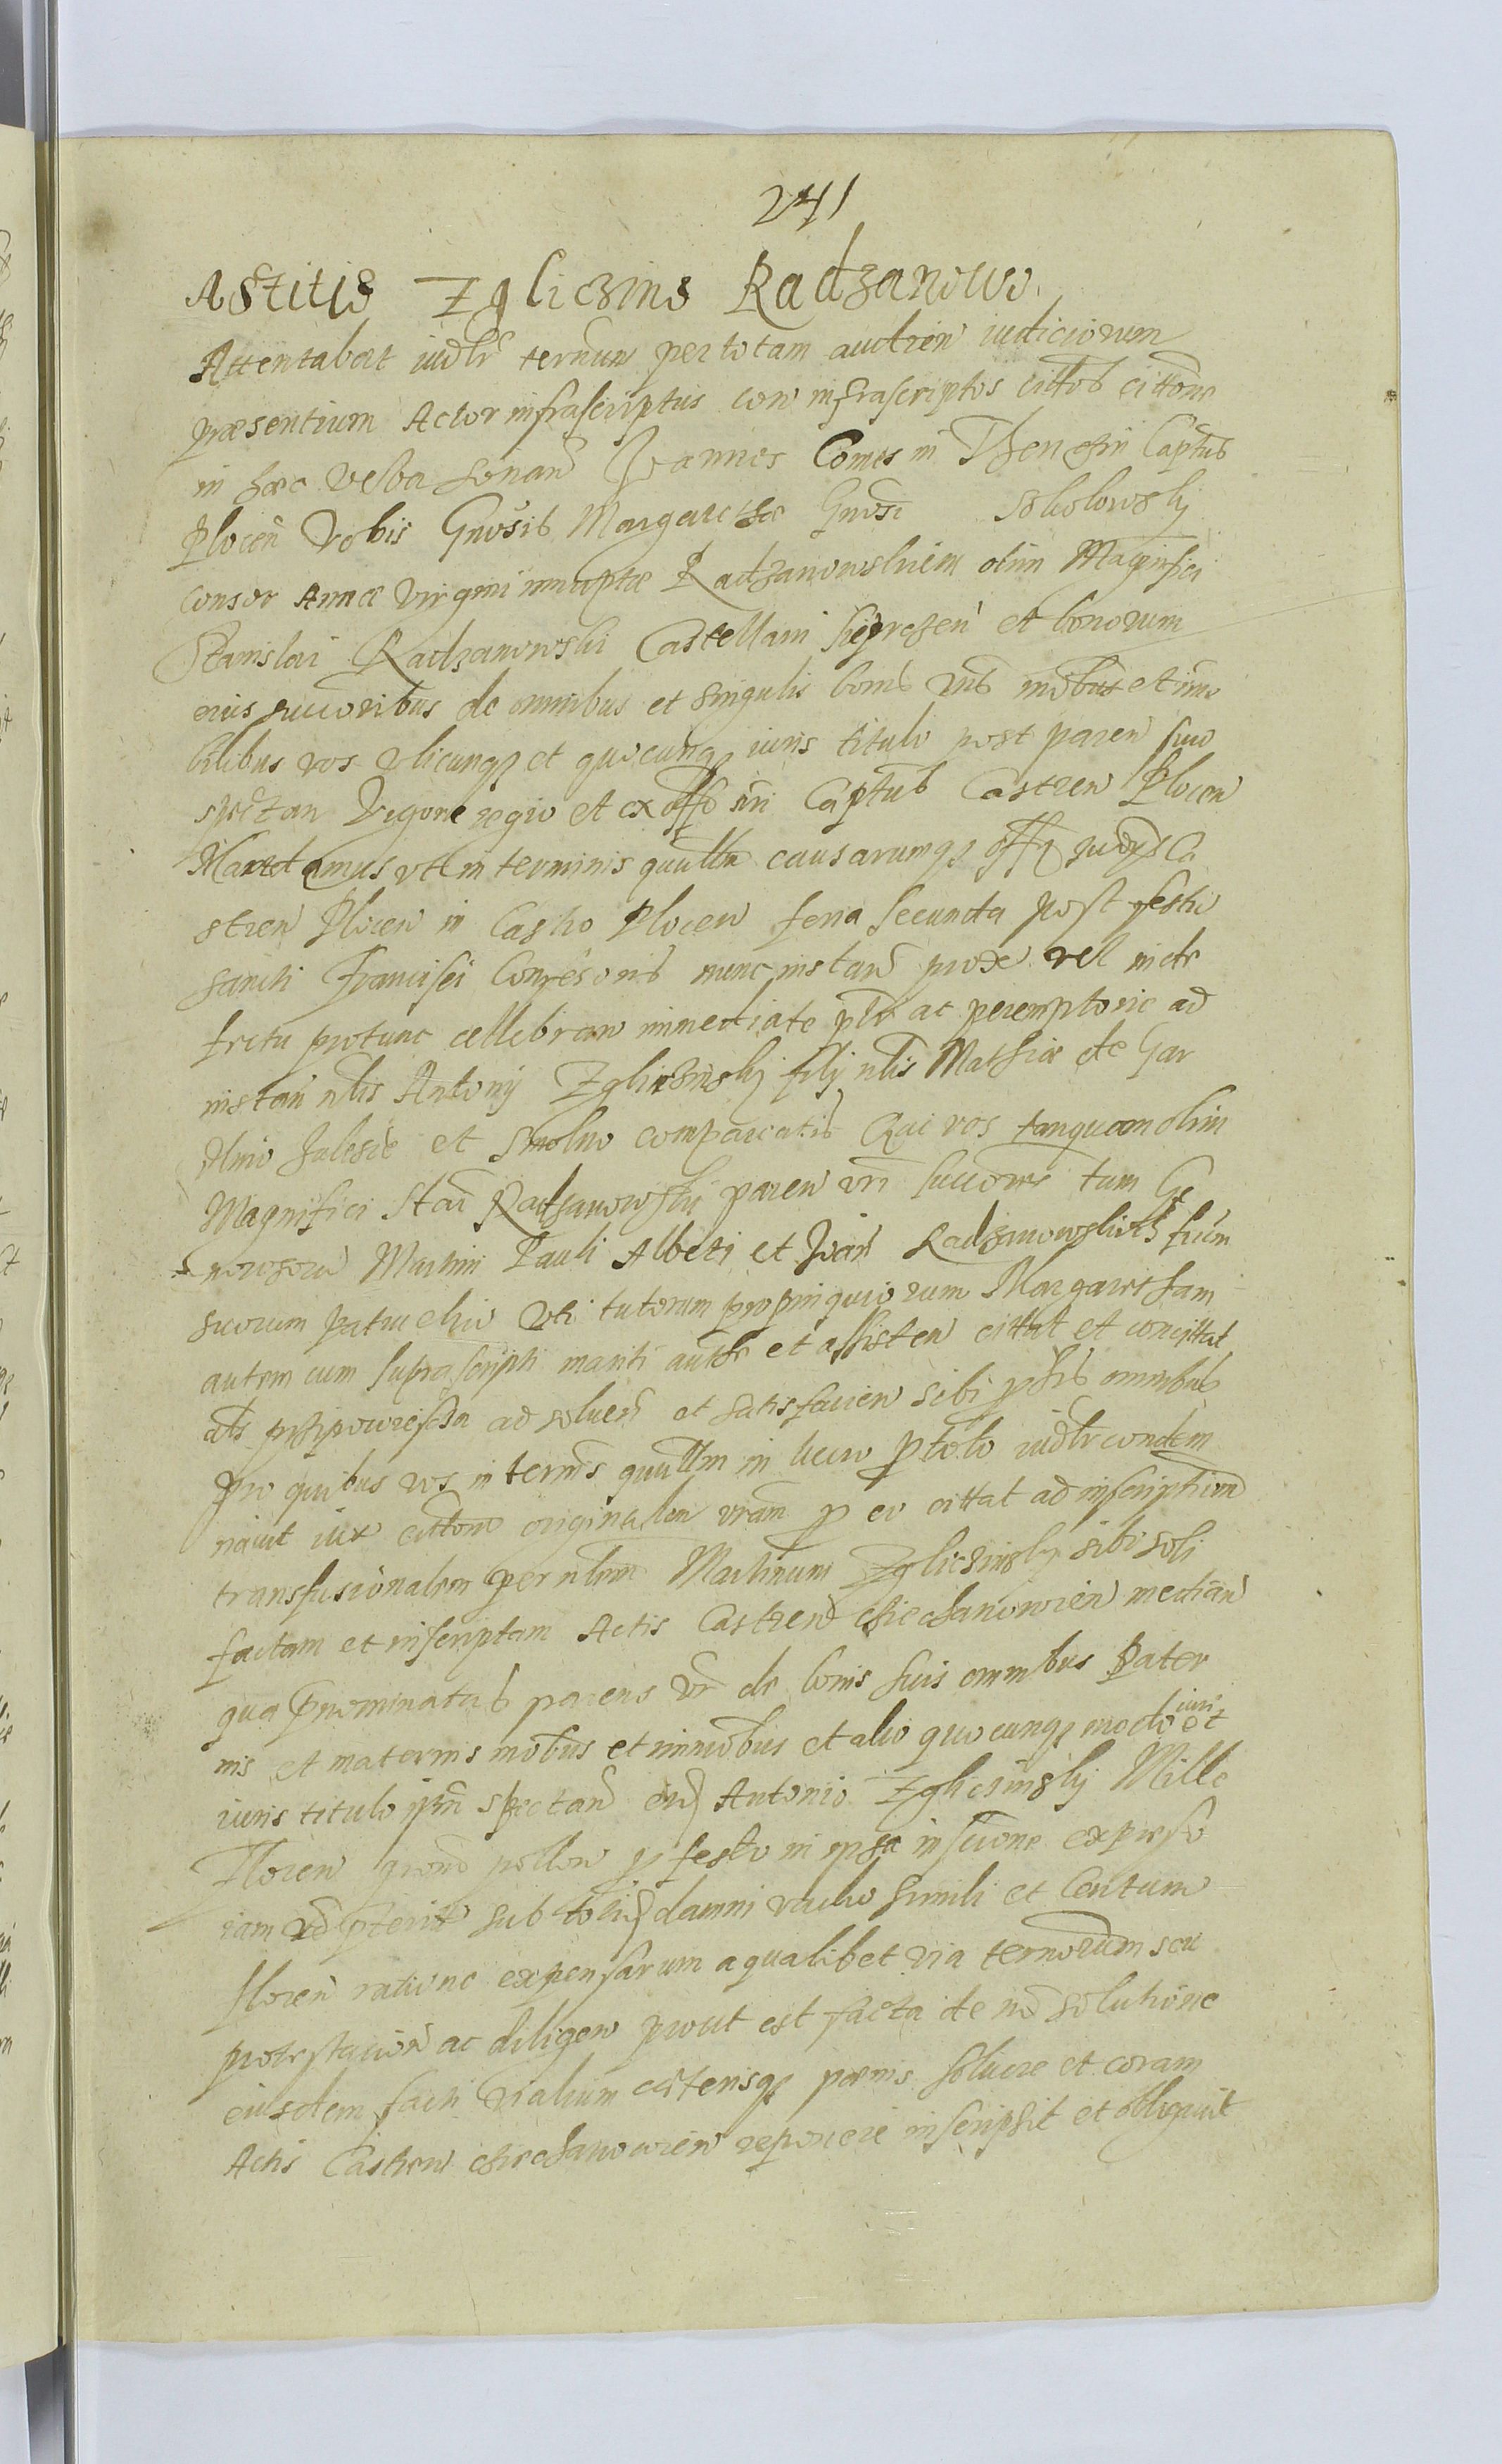 241
Astitio Zgliczins Radzanows
Attentabat iudlr termum per totam audien iudiciorum
præsentium Actor infrascriptus con infrascriptos cittos cittone
in hæc verba sonan Joannes Comes in Thenczin Captus
Plocen Vobis Gnosis Margarethæ Gnosi Sokolowsky
consor Annæ Virgini innuptæ Radzanowskiem olim Magnifici
Stanislai Radzanowski Castellani Sieprczen et bonorum
eius succoribus de omnibus et singulis bonis vris mobus et immo
bilibus vos vbicunq et quocunq iuris titulo post paren suo
spectan Vigore regio et ex offo nri Captus Castren Plocen
Mandamus vt in terminis quullm causarumq offi Judys Ca
stren Plocen in Castro Plocen feria secunda post festu
sancti Francisci Confesoris nunc instan prox vel inde
fretu protunc cellebran immediate plr ac peremptorie ad
instan nlis Antonij Zgliczinsky filij nlis Mathiæ de Gar
Jalesie et Smolno compareatis Qui vos tanquam olim
Magnifici Stai Radzanowski paren vri succores tum Ge
nerosoru Martini Pauli Alberti et Joan Radzanowskich frum
suorum patrueliu vti tutorum propinquiorum Margaretham
autem cum suprascripti mariti authe et assisten cittat et concittat
ad soluen et satisfacien sibi omnibus
Pro quibus vos in termis quullm in lucro ptolo iudlr condem
nauit iux cittone originalem vram p eo cittat ad inscriptione
transfusionalem per nlem Martinum Zgliczinsky sibi soli
factam et inscriptam Actis Castren Ciechanowien median
qua prnominatus parens vr de bonis suis omnibus Pater
nis et maternis mobus et immobus et alio quocunq modo iuris et
iuris titulo ipm spectan Antonio Zgliczinsky Mille
Floren pollon p festo in ipsa inscione expresso
iam pterit sub damni vadio simili et Centum
floren ratione expensarum a qualibet via ternorum seu
protestacion ac diligen prout est facta de no solutione
eiusdem facti vialium cæterisq pænis soluere et coram
Actis Castren Ciechanowien reponere inscripsit et obligauit